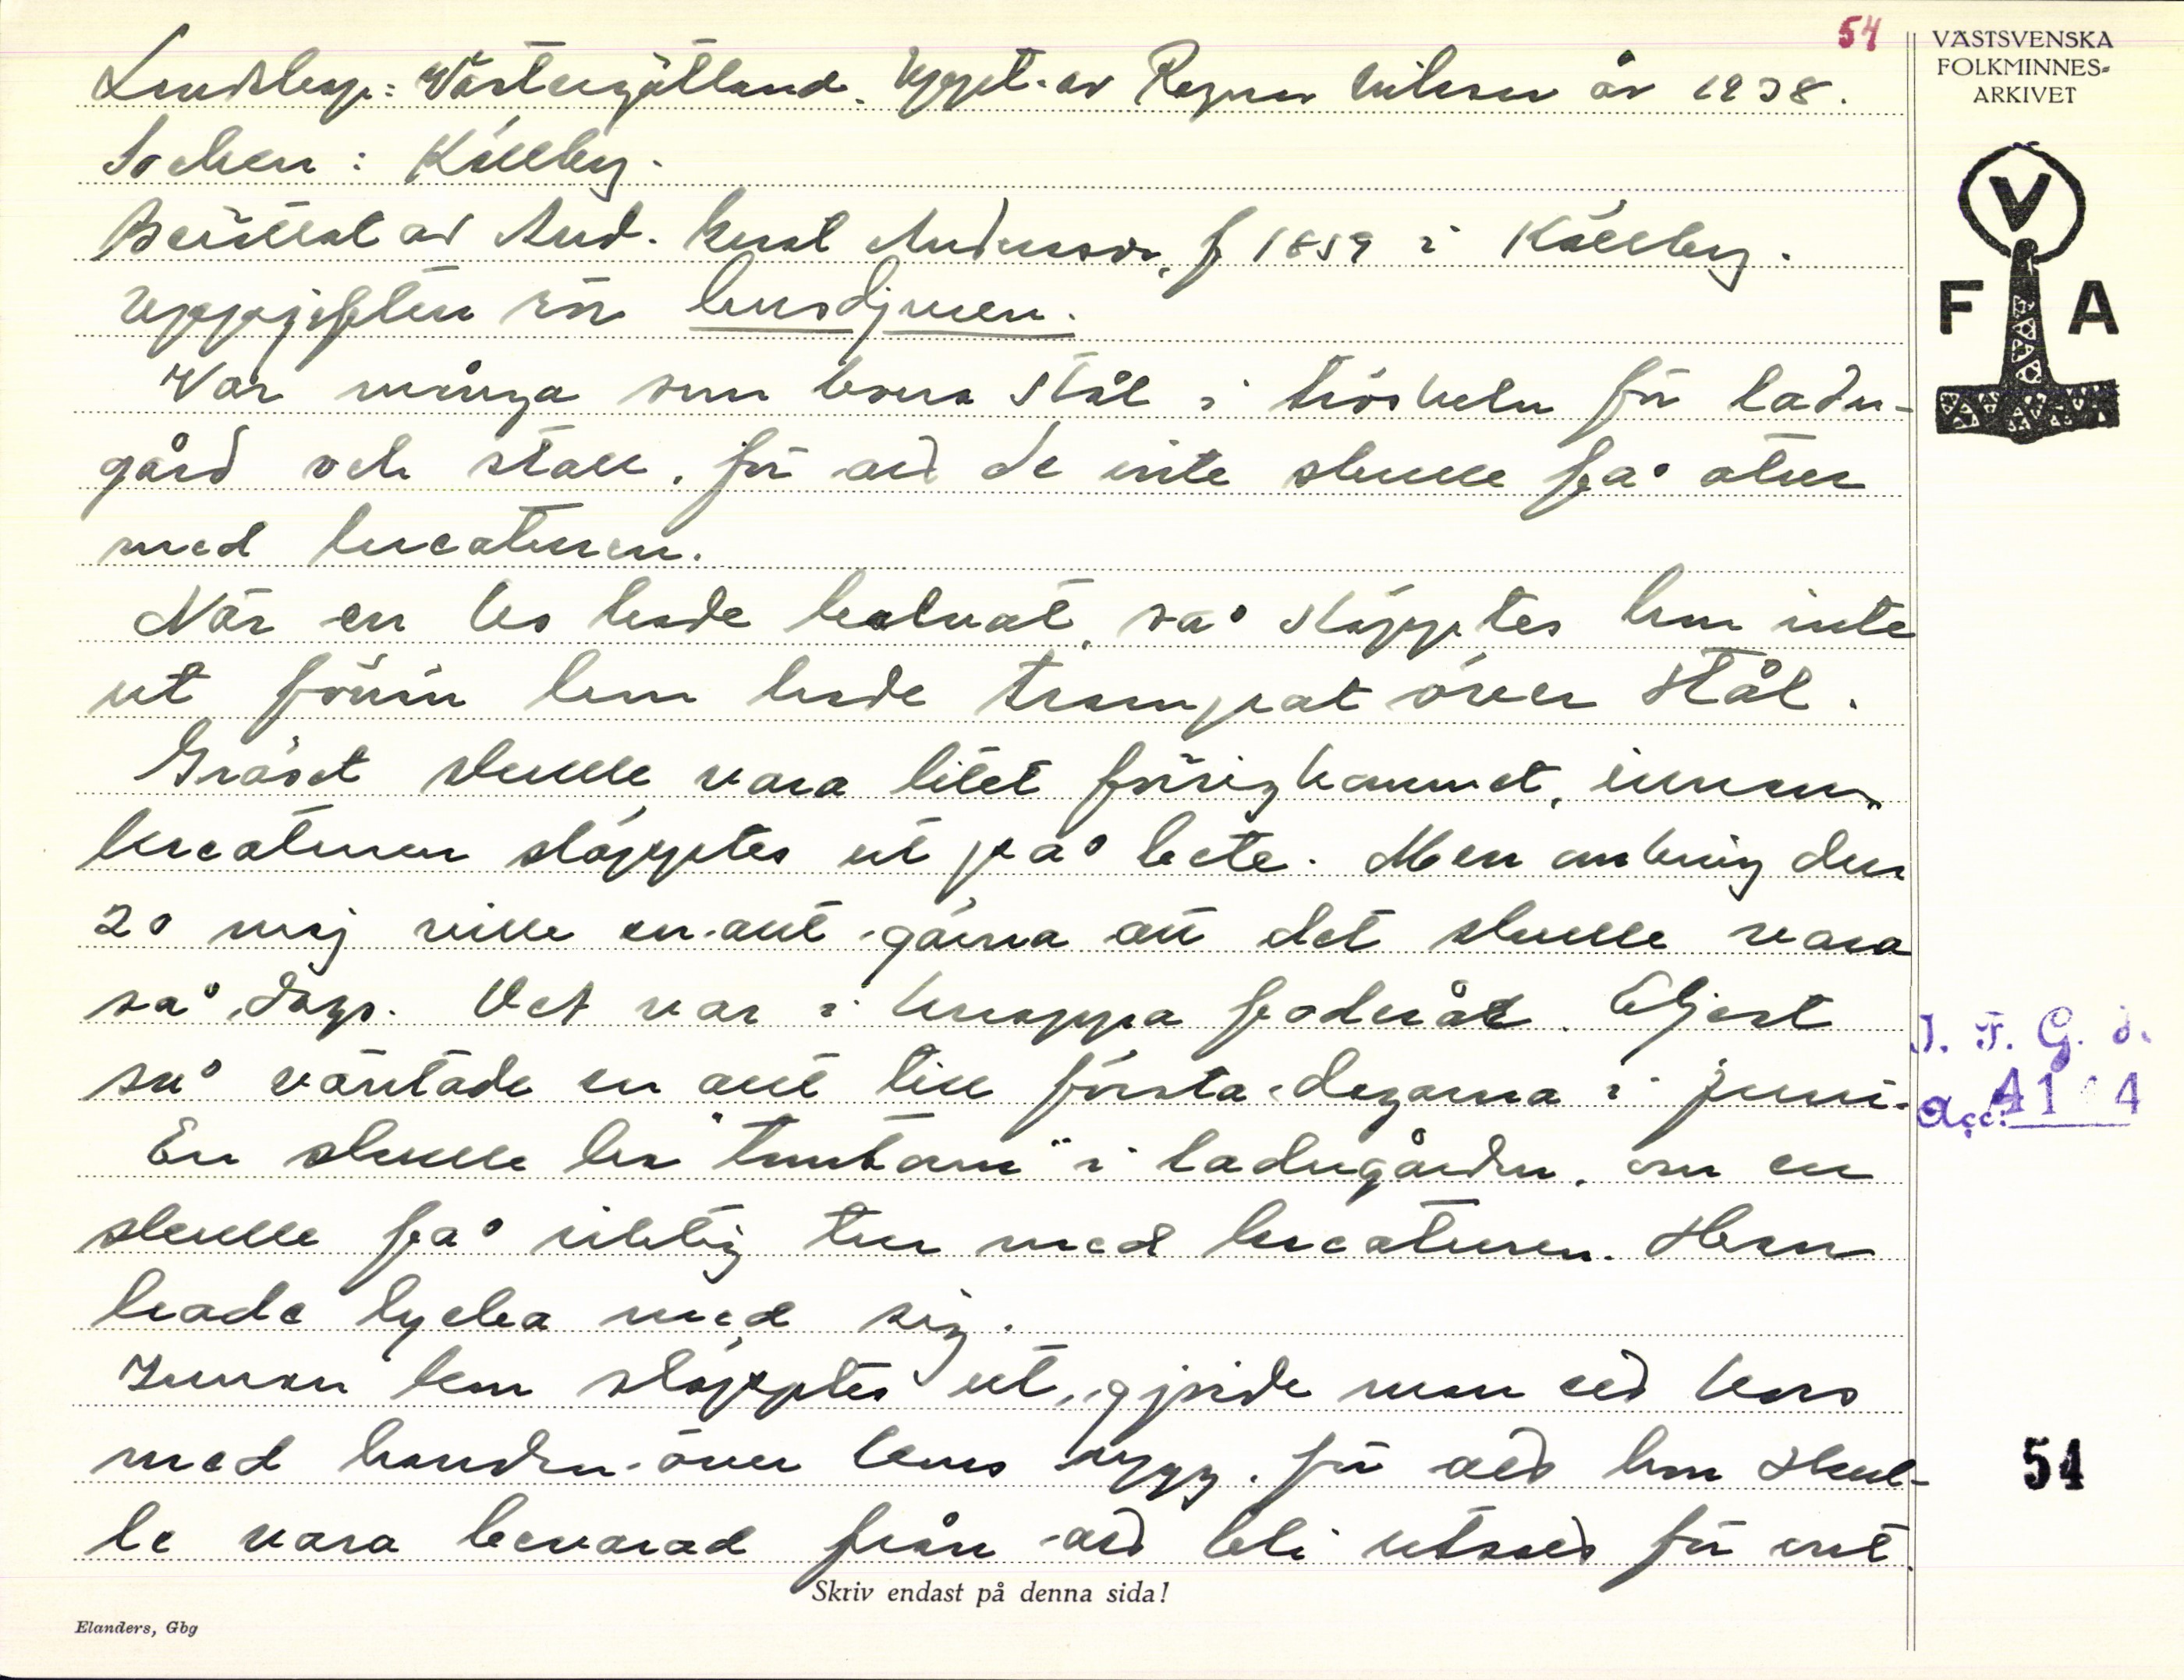 54
VÄSTSVENSKA
FOLKMINNES-
ARKIVET
Landskap: Västergötland. Uppt. av Ragnar Nilsson år 1938.
Socken: Källby.
Berättat av And. Gust Andersson, f 1859 i Källby.
Uppgifter om husdjuren.
V
F A
Var många som borra stål i tröskeln för ladu-
gård och stall, för att de inte skulle få otur
med kreaturen.
När en ko hade kalvat, så släpptes hon inte
ut förrän hon hade trampat över stål.
Gräset skulle vara litet försigkommet, innan
kreaturen släpptes ut på bete. Men omkring den
20 maj ville en allt gärna att det skulle vara
så dags. Det var i knappa foderår. Eljest
så väntade en allt till första dagarna i juni.
J. F. G. d.
Acc. 41 4
En skulle ha "tomtarn" i ladugården, om en
skulle få riktig tur med kreaturen. Han
hade lycka med sig.
Innan hon släpptes ut, gjorde man ett kors
med handen över kons rygg, för att hon skul-
54
le vara bevarad från att bli utsatt för ont.
Skriv endast på denna sida!
Elanders, Gbg